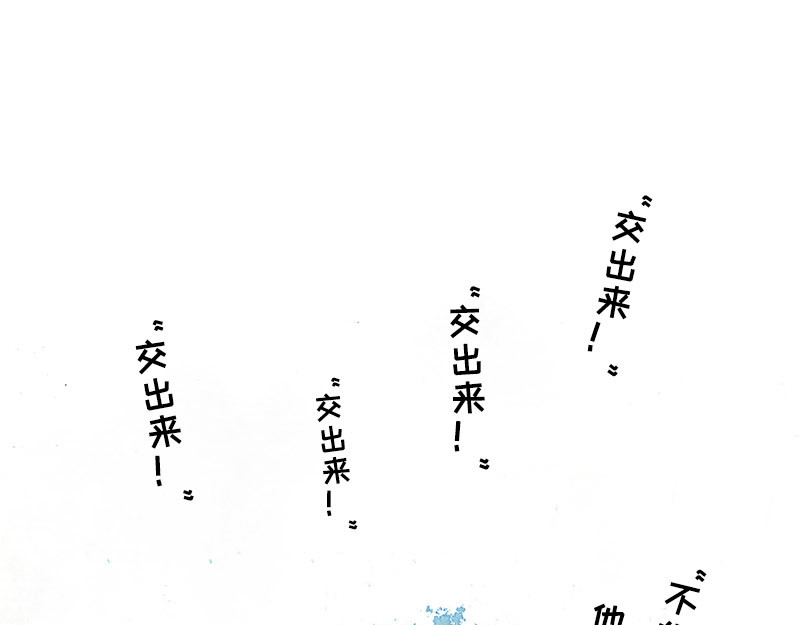 “交出来！”
“交出来！”
“交出来！”
“交出来！”
“不
他